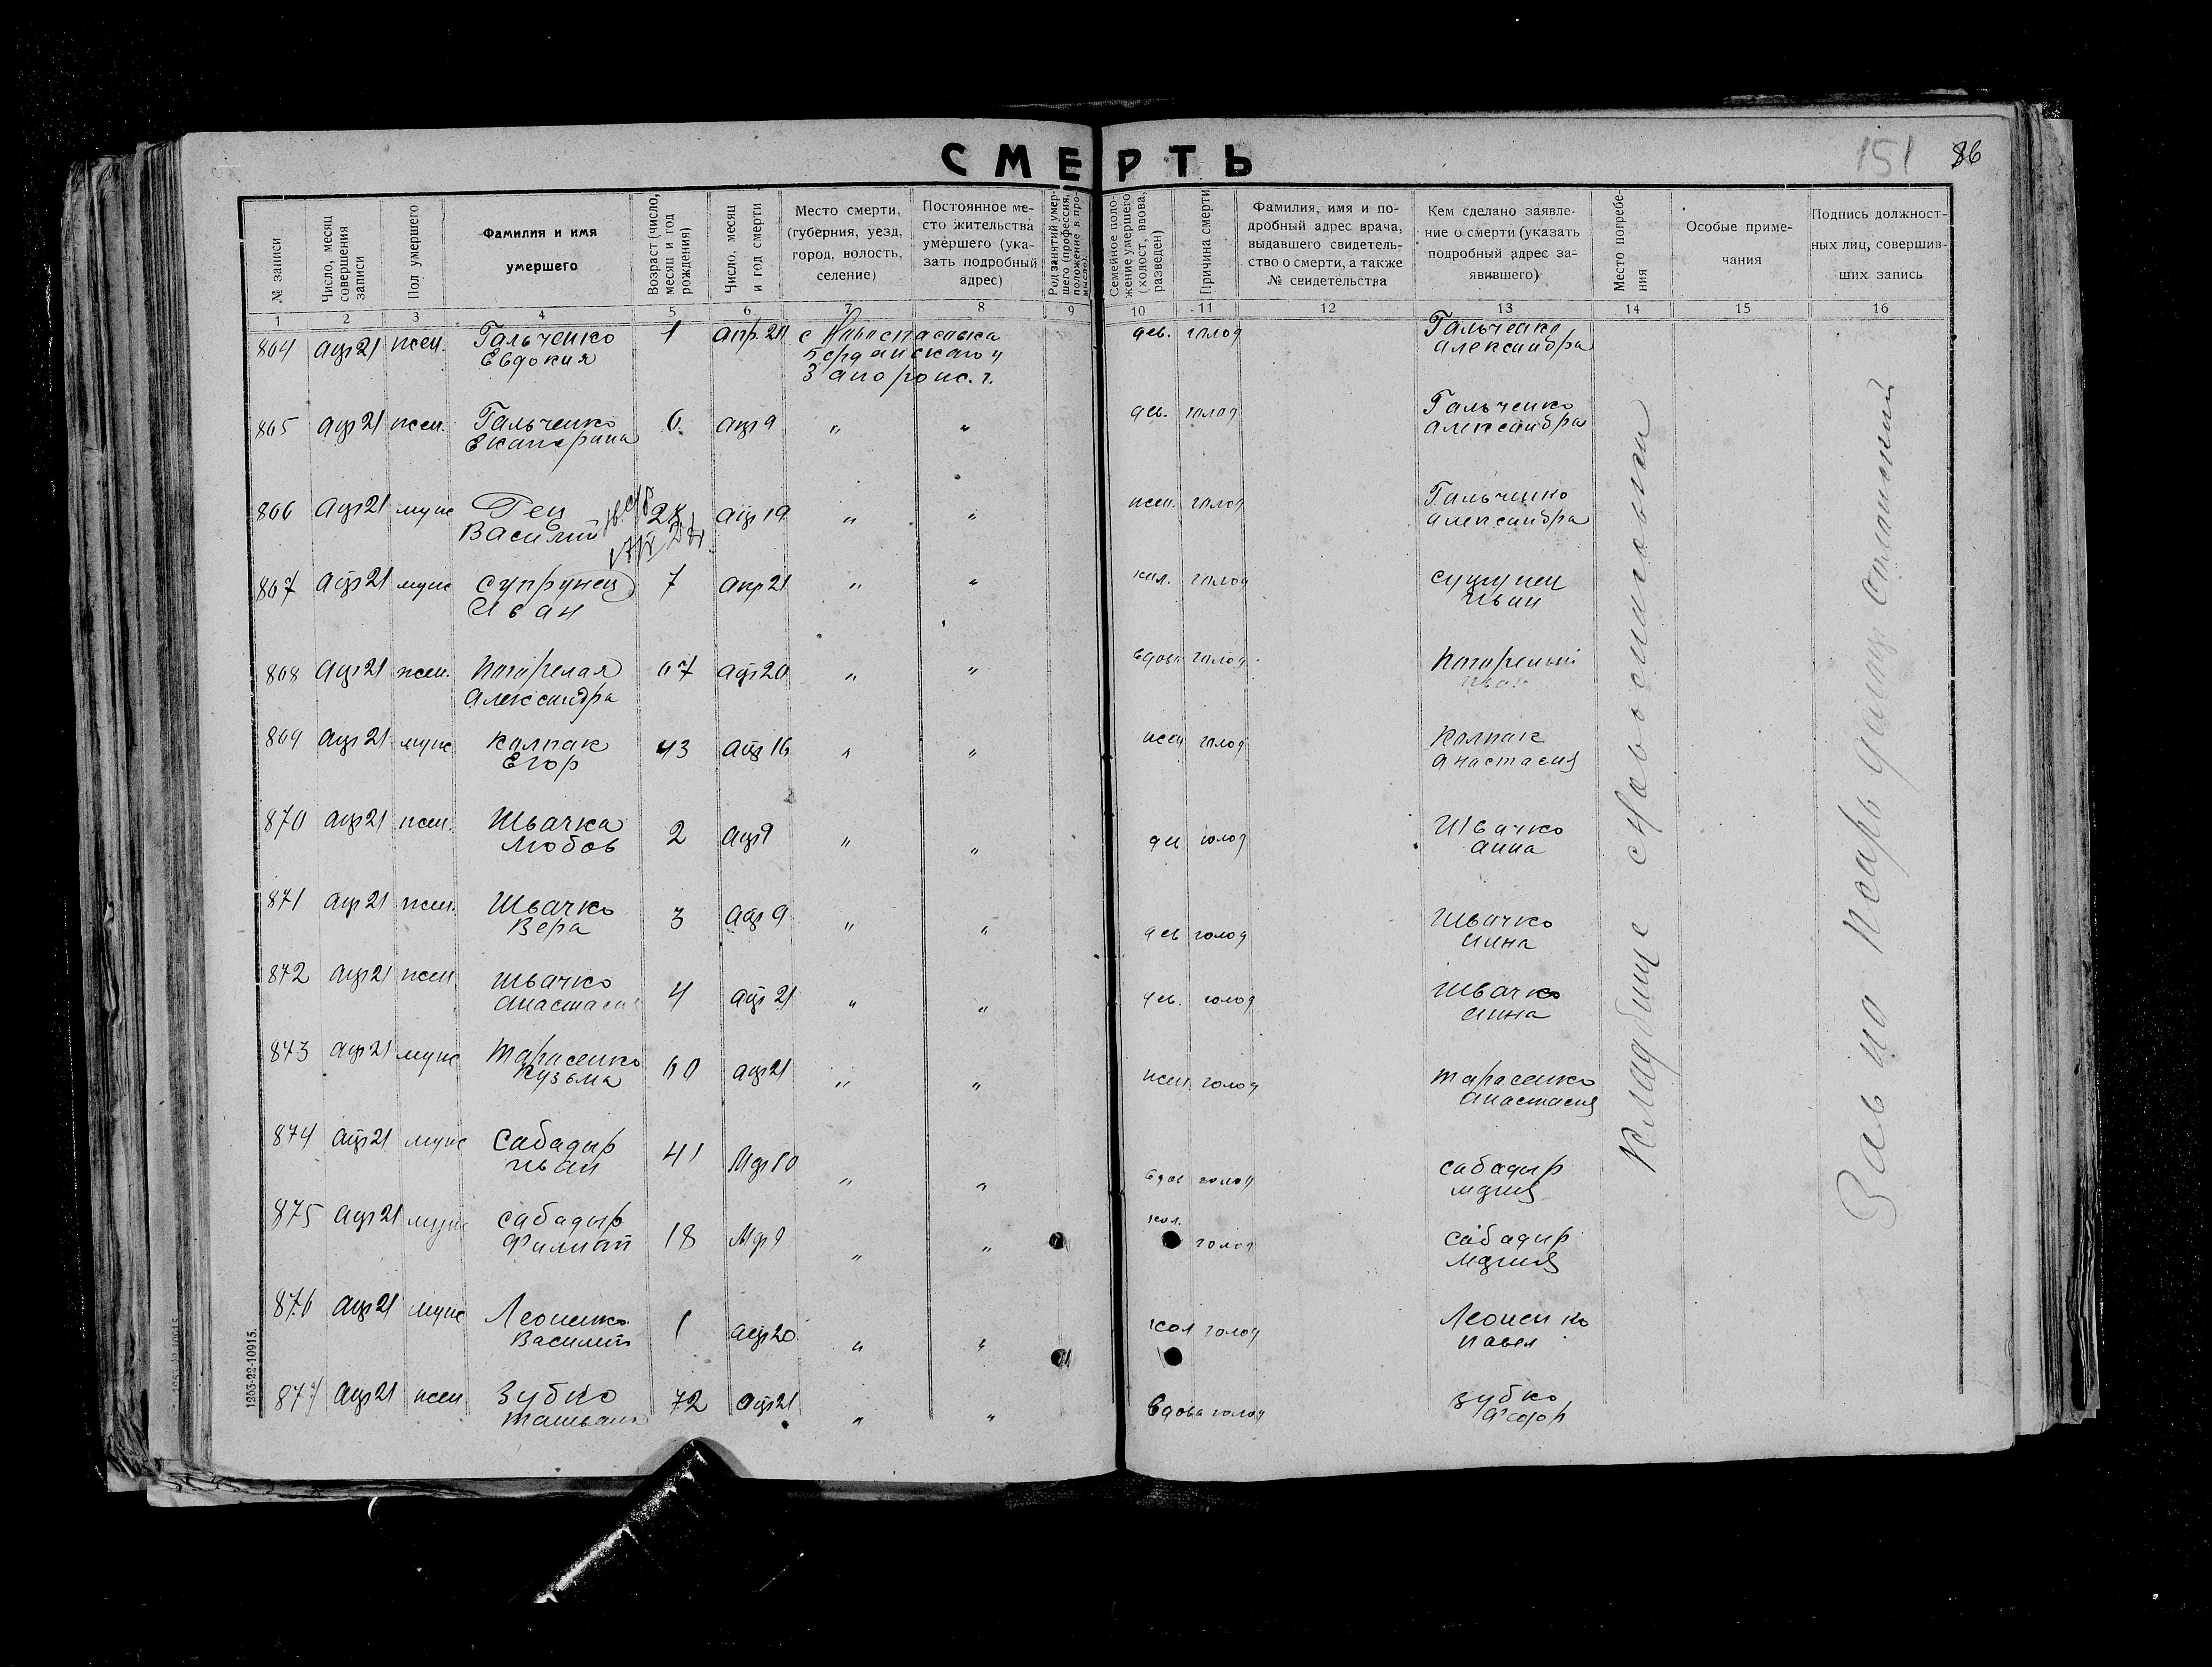 СМЕРТЬ
151 86
№ записи
Число, месяц совершения записи
Пол умершего
Фамилия и имя умершего
Возраст (число, месяц и год рождения)
Число, месяц и год смерти
Место смерти, (губерния, уезд, город, волость, селение)
Постоянное место жительства умершего (указать подробный адрес)
Род занятий умершего (профессия, положение в промысле)
Семейное положение умершего (холост, вдова, разведен)
Причина смерти
Фамилия, имя и подробный адрес врача, выдавшего свидетельство о смерти, а также № свидетельства
Кем сделано заявление о смерти (указать подробный адрес заявившего)
Место погребения
Особые примечания
Подпись должностных лиц, совершивших запись
1 2 3 4 5 6 7 8 9 10 11 12 13 14 15 16
864 апр 21 жен. Гальченко 1 апр. 20 с Новоспасовка дев. голод Гальченко
Евдокия Бердянского у Александра
Запорож. г.
865 апр 21 жен. Гальченко 6 апр 9 " " дев. голод Гальченко
Екатерина Александра
866 апр 21 муж 28 апр 19 " " жен. голод Гальченко
Василий Александра
867 апр 21 муж Супрунец 7 апр 21 " " хол. голод Супрунец
Иван Иван
868 апр 21 жен. Погорелая 67 апр 20 " " вдова голод Погорелый
Александра Иван
869 апр 21 муж Колпак 43 апр 16 " " жен голод Колпак
Егор Анастасия
870 апр 21 жен. Швачка 2 апр 9 " " дев голод Швачко
Любов Анна
871 апр 21 жен. Швачко 3 апр 9 " " дев голод Швачко
Вера Анна
872 апр 21 жен Швачко 4 апр 21 " " дев. голод Швачко
Анастасия Анна
873 апр 21 муж Тарасенко 60 апр 21 " " жен. голод Тарасенко
Кузьма Анастасия
874 апр 21 муж Сабадыр 41 Мар 10 " " вдов голод Сабадыр
Иван Мария
875 апр 21 муж Сабадыр 18 Мар 9 " " хол. голод Сабадыр
Филипп Мария
876 апр 21 муж Леоненко 1 апр 20 " " хол голод Леоненко
Василий Павел
877 апр 21 жен. Зубко 72 апр 21 " " вдова голод Зубко
Татьяна Федор
Кладбище
1253-22-10915.